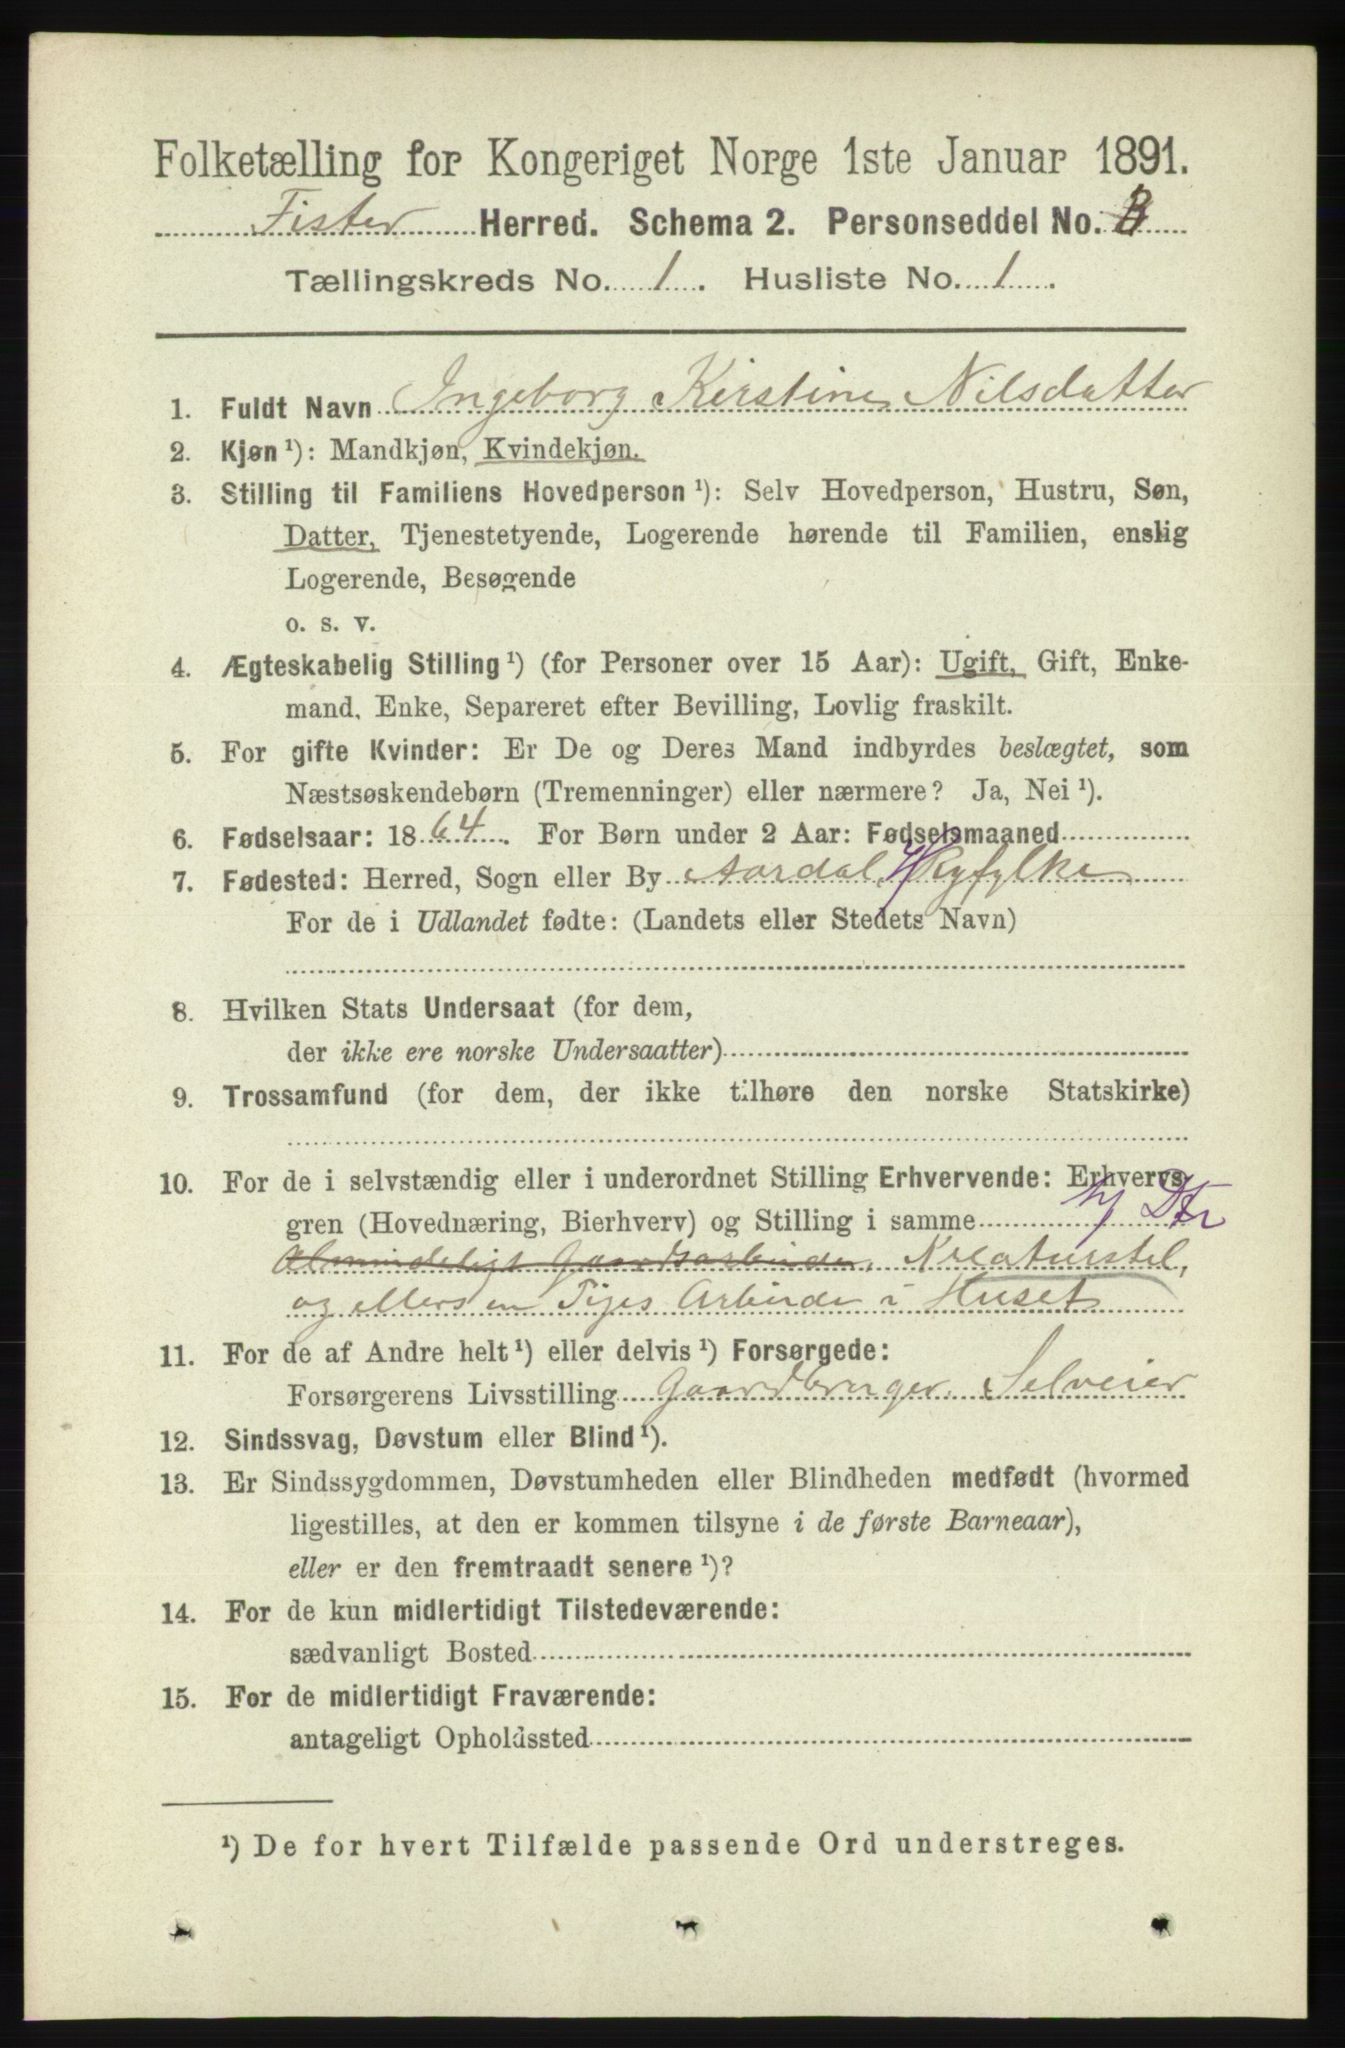 Folketælling for Kongeriget Norge 1ste Januar 1891.
Fister Herred. Schema 2. Personseddel No. 3
Tællingskreds No. 1. Husliste No. 1.
1. Fuldt Navn Ingeborg Kirstine Nilsdatter
2. Kjøn ¹): Mandkjøn, Kvindekjøn.
3. Stilling til Familiens Hovedperson ¹): Selv Hovedperson, Hustru, Søn,
Datter, Tjenestetyende, Logerende hørende til Familien, enslig
Logerende, Besøgende
o. s. v.
4. Ægteskabelig Stilling ¹) (for Personer over 15 Aar): Ugift, Gift, Enke-
mand, Enke, Separeret efter Bevilling, Lovlig fraskilt.
5. For gifte Kvinder: Er De og Deres Mand indbyrdes beslægtet, som
Næstsøskendebørn (Tremenninger) eller nærmere? Ja, Nei ¹).
6. Fødselsaar: 1864. For Børn under 2 Aar: Fødselsmaaned
7. Fødested: Herred, Sogn eller By Aardal, Ryfylke
For de i Udlandet fødte: (Landets eller Stedets Navn)
8. Hvilken Stats Undersaat (for dem,
der ikke ere norske Undersaatter)
9. Trossamfund (for dem, der ikke tilhøre den norske Statskirke)
10. For de i selvstændig eller i underordnet Stilling Erhvervende: Erhvervs-
gren (Hovednæring, Bierhverv) og Stilling i samme
Almindeligt Gaardsarbeide, Kreaturstel,
og ellers en Piges Arbeide i Huset
11. For de af Andre helt ¹) eller delvis ¹) Forsørgede:
Forsørgerens Livsstilling Gaardbruger, Selveier
12. Sindssvag, Døvstum eller Blind ¹).
13. Er Sindssygdommen, Døvstumheden eller Blindheden medfødt (hvormed
ligestilles, at den er kommen tilsyne i de første Barneaar),
eller er den fremtraadt senere ¹)?
14. For de kun midlertidigt Tilstedeværende:
sædvanligt Bosted
15. For de midlertidigt Fraværende:
antageligt Opholdssted
¹) De for hvert Tilfælde passende Ord understreges.